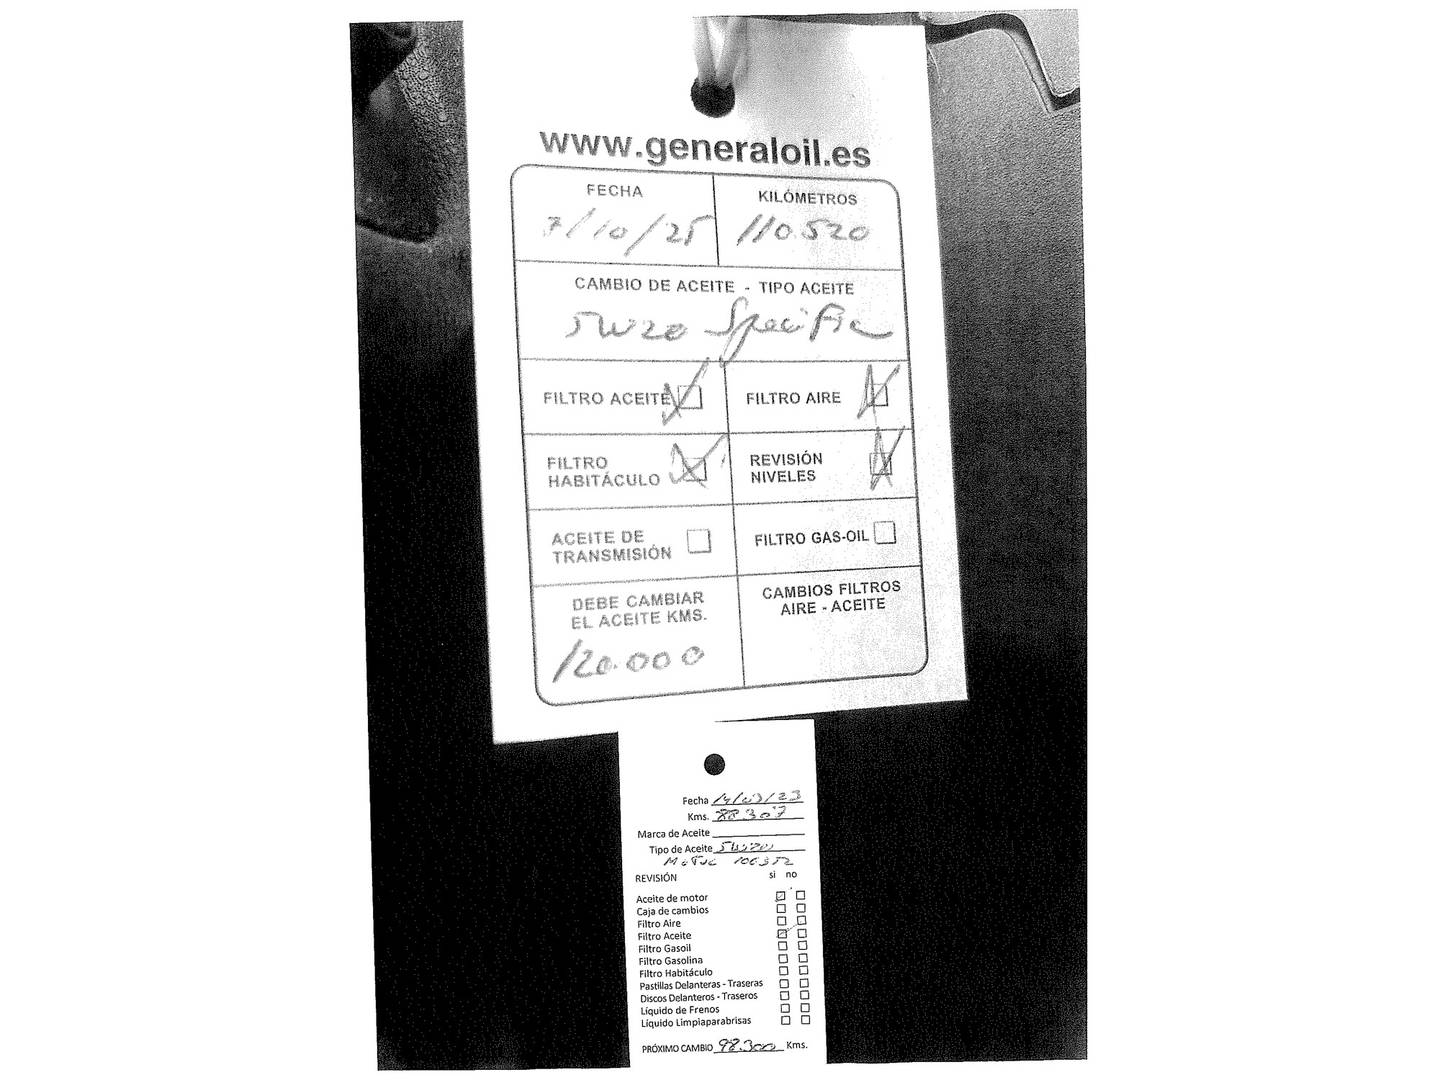 www.generaloil.es
FECHA
7/10/25
KILÓMETROS
110.520
CAMBIO DE ACEITE - TIPO ACEITE
5W20 Specific
FILTRO ACEITE
FILTRO AIRE
FILTRO
HABITÁCULO
REVISIÓN
NIVELES
ACEITE DE
TRANSMISIÓN
FILTRO GAS-OIL
DEBE CAMBIAR
EL ACEITE KMS.
120.000
CAMBIOS FILTROS
AIRE - ACEITE
Fecha 14/03/23
Kms. 88.307
Marca de Aceite
Tipo de Aceite 5W20
Motul
REVISIÓN si no
Aceite de motor
Caja de cambios
Filtro Aire
Filtro Aceite
Filtro Gasoil
Filtro Gasolina
Filtro Habitáculo
Pastillas Delanteras - Traseras
Discos Delanteros - Traseros
Líquido de Frenos
Líquido Limpiaparabrisas
PRÓXIMO CAMBIO 98.300 Kms.